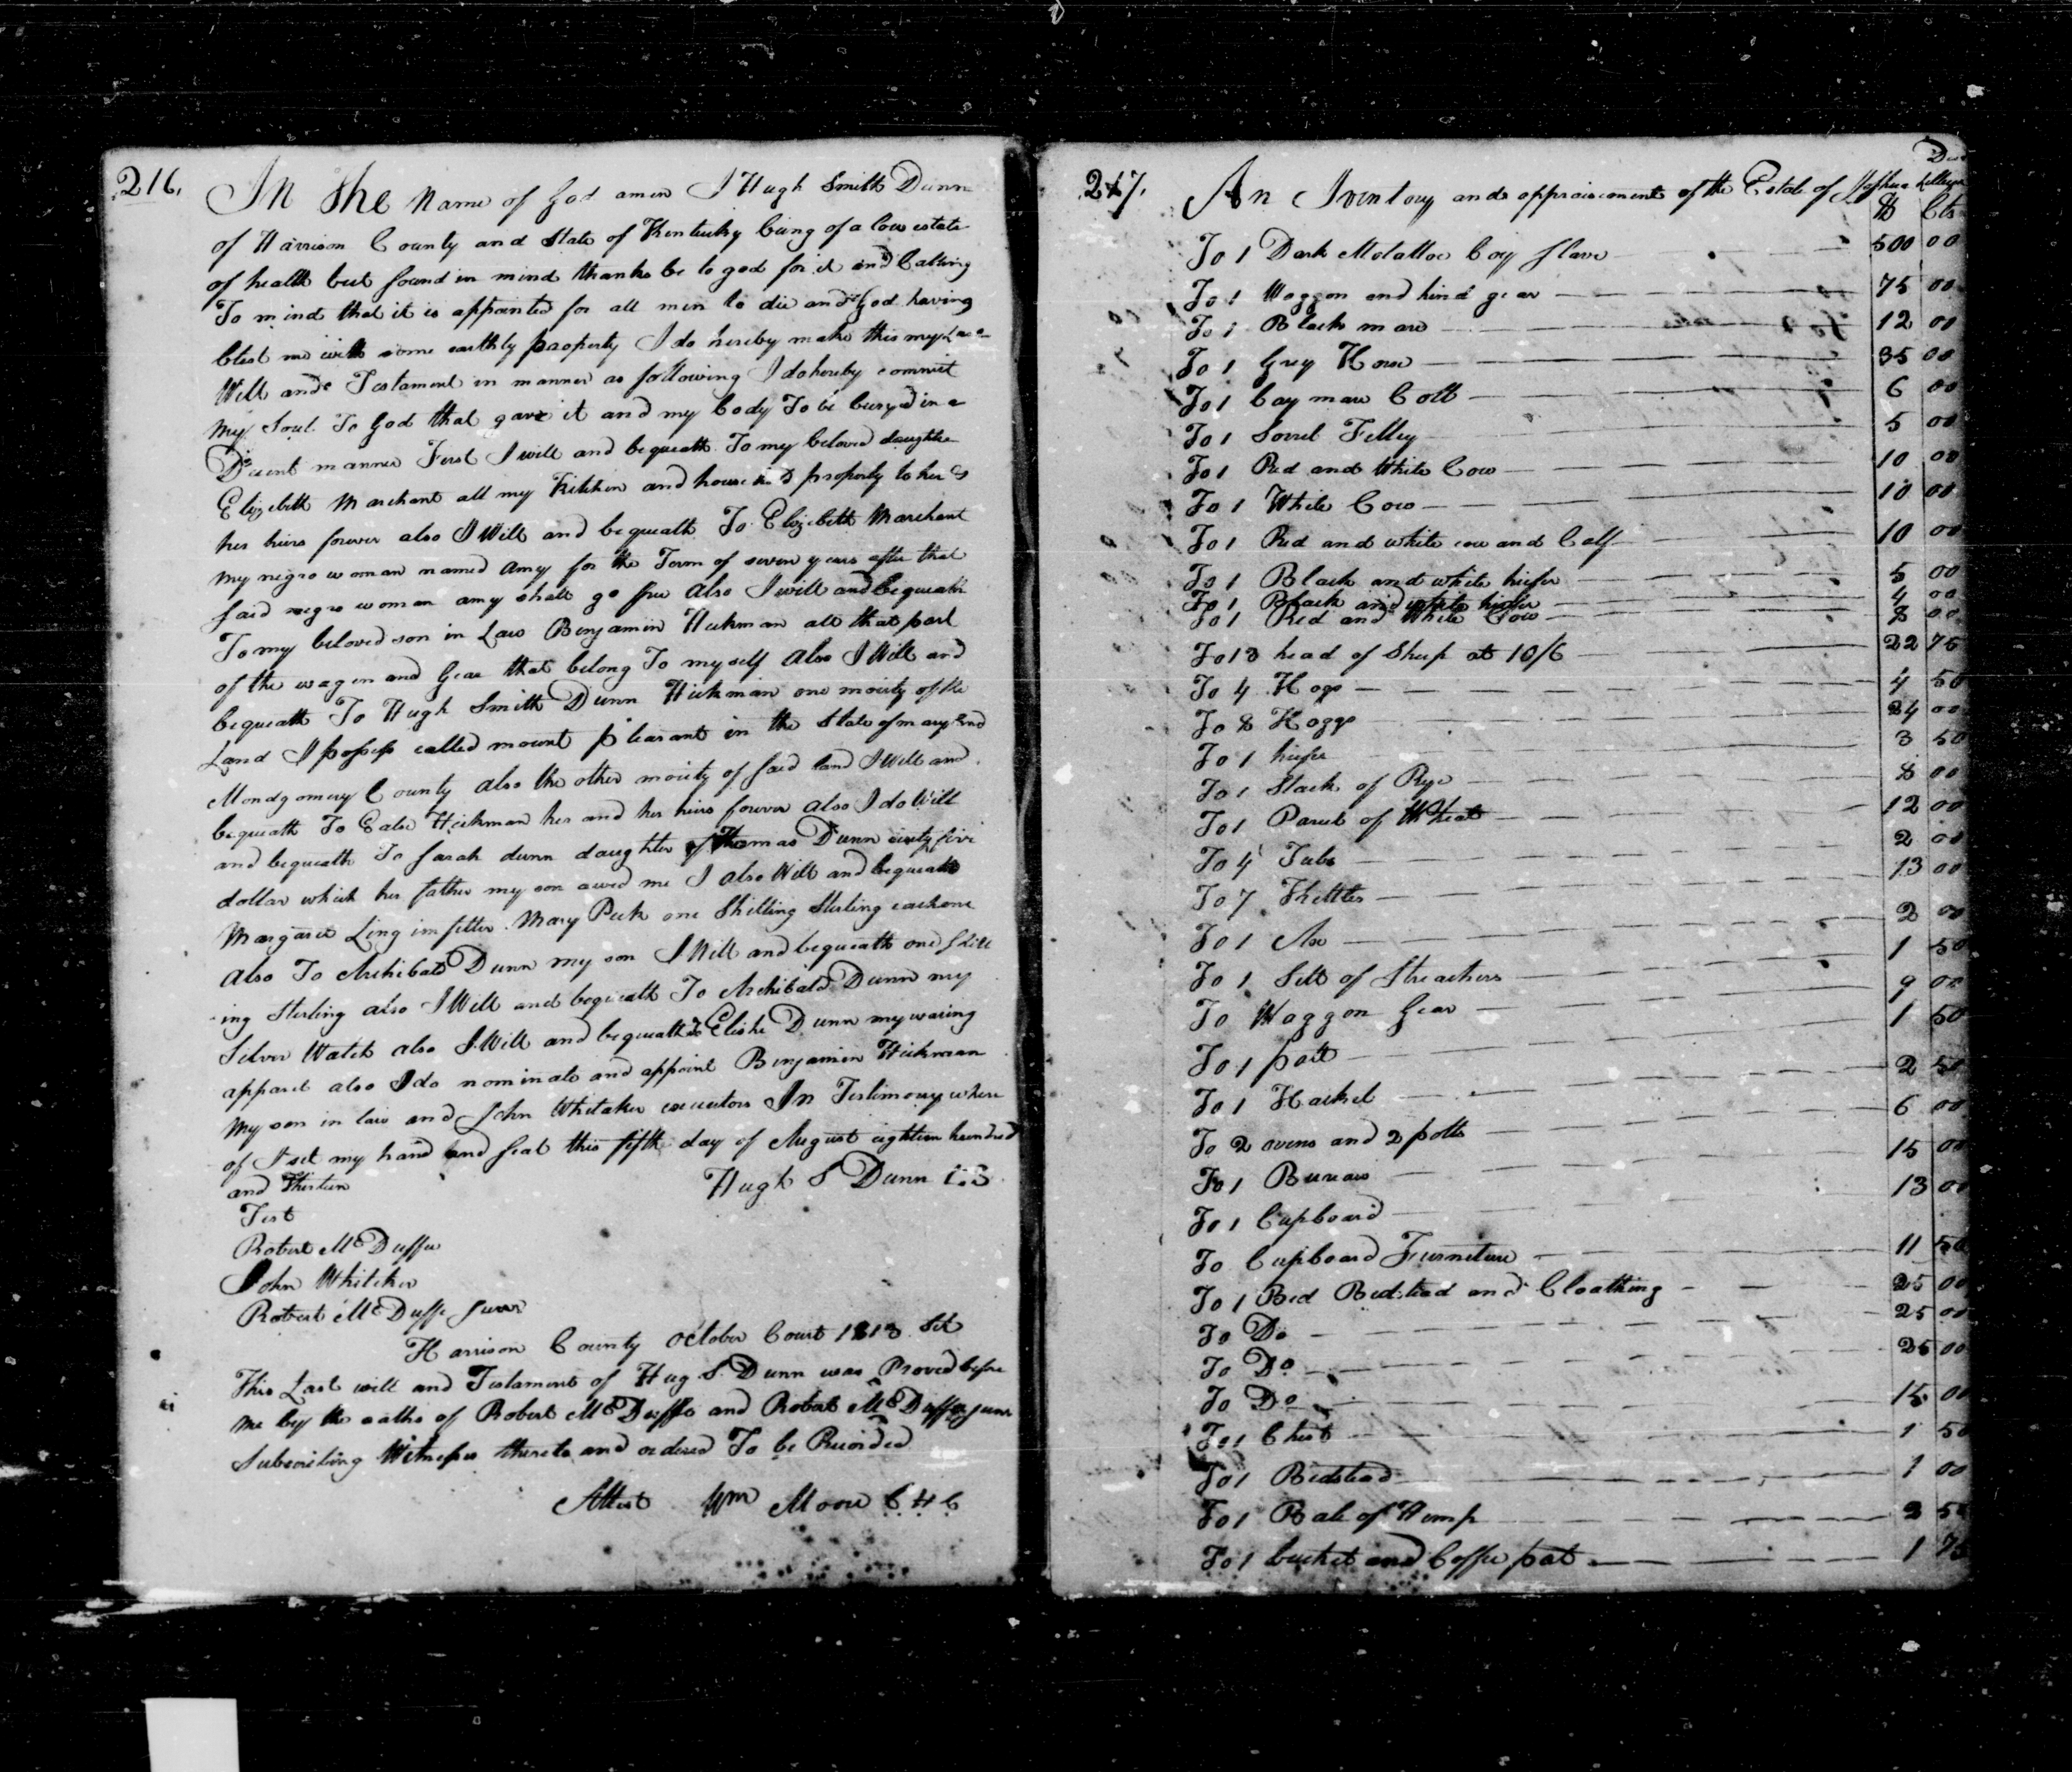 216.
In the Name of God amen I Hugh Smith Dunn
of Harrison County and State of Kentucky being of a low estate
of health but sound in mind thanks be to god for it and Calling
To mind that it is appointed for all men to die and God having
blest me with some earthly property I do hereby make this my
Will and Testament in manner as following I do hereby commit
my Soul To God that gave it and my body To be buryed in a
Decent manner First I will and bequeath To my beloved daughter
Elizebeth Marchant all my Kitchen and house property to her &
her heirs forever also I Will and bequeath To Elizebeth Marchant
my negro woman named Amy for the Term of seven years after that
said negro woman amy shall go free also I will and bequeath
To my beloved son in Law Benjamin Hickman all that part
of the wagen and Gear that belong To myself also I Will and
bequeath To Hugh Smith Dunn Hickman one moiety of the
Land I possess called mount pleasant in the State of maryland
Mondgomery County also the other moiety of said land I Will and
bequeath To Hickman her and her heirs forever also I do Will
and bequeath To Sarah dunn daughter of Thomas Dunn sixty five
dollar which her father my son awed me I also Will and bequeath
Margaret Ling imfitter Mary Peek one Shilling Sterling each one
also To Archibald Dunn my son I Will and bequeath one Shill
ing Sterling also I Will and bequeath To Archibald Dunn my
Silver Watch also I Will and bequeath to Elisha Dunn my waring
apparel also I do nominate and appoint Benjamin Hickman
my son in law and John Whitaker executors In Testimony where
of I set my hand and seal this fifth day of August eighteen hundred
and Thirteen
Hugh S Dunn L.S
Test
Robert McDuffee
John Whitaker
Robert McDuffe Junr
Harrison County October Court 1813 Sct
This Last will and Testament of Hug S. Dunn was Proved before
me by the oaths of Robert McDuffe and Robert McDuffe junr
Subscribing Witnesses thereto and ordered To be Recorded
Attest Wm Moore C.H.C
217.
An Inventory and appraisement of the Estate of Joshua
$ Cts
To 1 Dark Molattoe boy slave 500 00
To 1 Waggon and hind gear 75 00
To 1 Black mare 12 00
To 1 Grey Horse 35 00
To 1 bay mare Colt 6 00
To 1 Sorrel Filley 5 00
To 1 Red and White Cow 10 00
To 1 White Cow 10 00
To 1 Red and white cow and Calf 10 00
To 1 Black and white hiefer 5 00
To 1 Black and white hiefer 4 00
To 1 Red and White Cow 8 00
To 13 head of Sheep at 10/6 22 75
To 4 Hogs 4 50
To 8 Hoggs 24 00
To 1 hiefer 3 50
To 1 Stack of Rye 8 00
To 1 Parcel of Wheat 12 00
To 4 Tubs 2 00
To 7 Kettles 13 00
To 1 Ax 2 00
To 1 Sett of Streachers 1 50
To Waggon Gear 9 00
To 1 pott 1 50
To 1 Hackel 2 50
To 2 ovens and 2 potts 6 00
To 1 Bureau 15 00
To 1 Cupboard 13 00
To Cupboard Furneture 11 50
To 1 Bed Bedstead and Cloathing 25 00
To Do 25 00
To Do 25 00
To Do 15 00
To 1 Chest 1 50
To 1 Bedstead 1 00
To 1 Bale of Hemp 2 50
To 1 bucket and Coffee pot 1 75